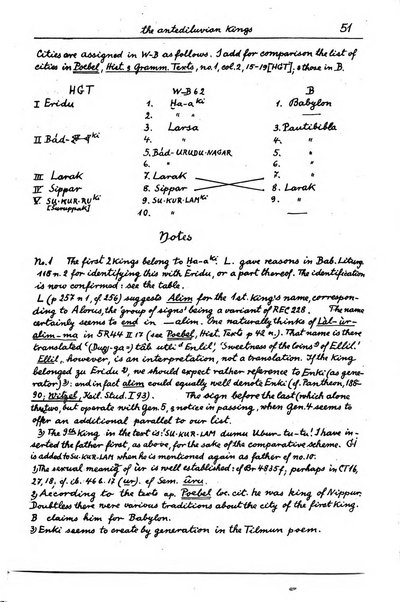 the antediluvian Kings 51
Cities are assigned in W-B as follows. I add for comparison the list of
cities in Poebel, Hist. & Gramm. Texts, no.1, col.2, 15-19 [HGT], & those in B.
HGT W-B 62 B
I Eridu 1. Ḫa-a ki 1. Babylon
2. " " —
3. Larsa 3. Pautibibla
II Bád- ki 4. " 4. "
5. Bád-URUDU-NAGAR 5. "
6. " 6. "
III Larak 7. Larak 7. "
IV Sippar 8. Sippar 8. Larak
V SU-KUR-RU ki 9. SU-KUR-LAM ki 9. "
[Šuruppak] 10. " —
Notes
No.1 The first 2 kings belong to Ḫa-a ki. L. gave reasons in Bab. Liturg.
115 n. 2 for identifying this with Eridu, or a part thereof. The identification
is now confirmed: see the table.
L (p 257 n 1, cf. 256) suggests Alim for the 1st. King's name, correspon-
ding to Alorus, the 'group of signs' being a variant of REC 228. The name
certainly seems to end in —alim. One naturally thinks of Làl-ùr-
alim-ma in 5R44 II 17 (see Poebel, Hist. Texts p 42 n.). That name is there
translated (Dugg-ga=) tâb utli "Enlil", 'Sweetness of the loins 1) of Ellil.'
Ellil, however, is an interpretation, not a translation. If the King
belonged to Eridu 2), we should expect rather reference to Enki (as gene-
rator) 3): and in fact alim could equally well denote Enki (cf. Pantheon, 188-
90; Witzel, Keil. Stud. I 93). The sign before the last (which alone
the two, but operate with Gen. 5, & notice in passing, when Gen. 4 seems to
offer an additional parallel to our list.
3) The 9th King in the text is: SU-KUR-LAM dumu Ubur-tu-tu. I have in-
serted the father first, as above, for the sake of the comparative scheme. Gi
is added to SU-KUR-LAM when he is mentioned again as father of no. 10.
1) The sexual meaning of ùr is well established: cf Br 4835 f; perhaps in CT 16,
27, 18, cf. ib. 46 6. 17 (ur). cf Sem. ûru.
2) According to the text ap. Poebel loc. cit. he was king of Nippur.
Doubtless there were various traditions about the city of the first King.
B claims him for Babylon.
3) Enki seems to create by generation in the Tilmun poem.